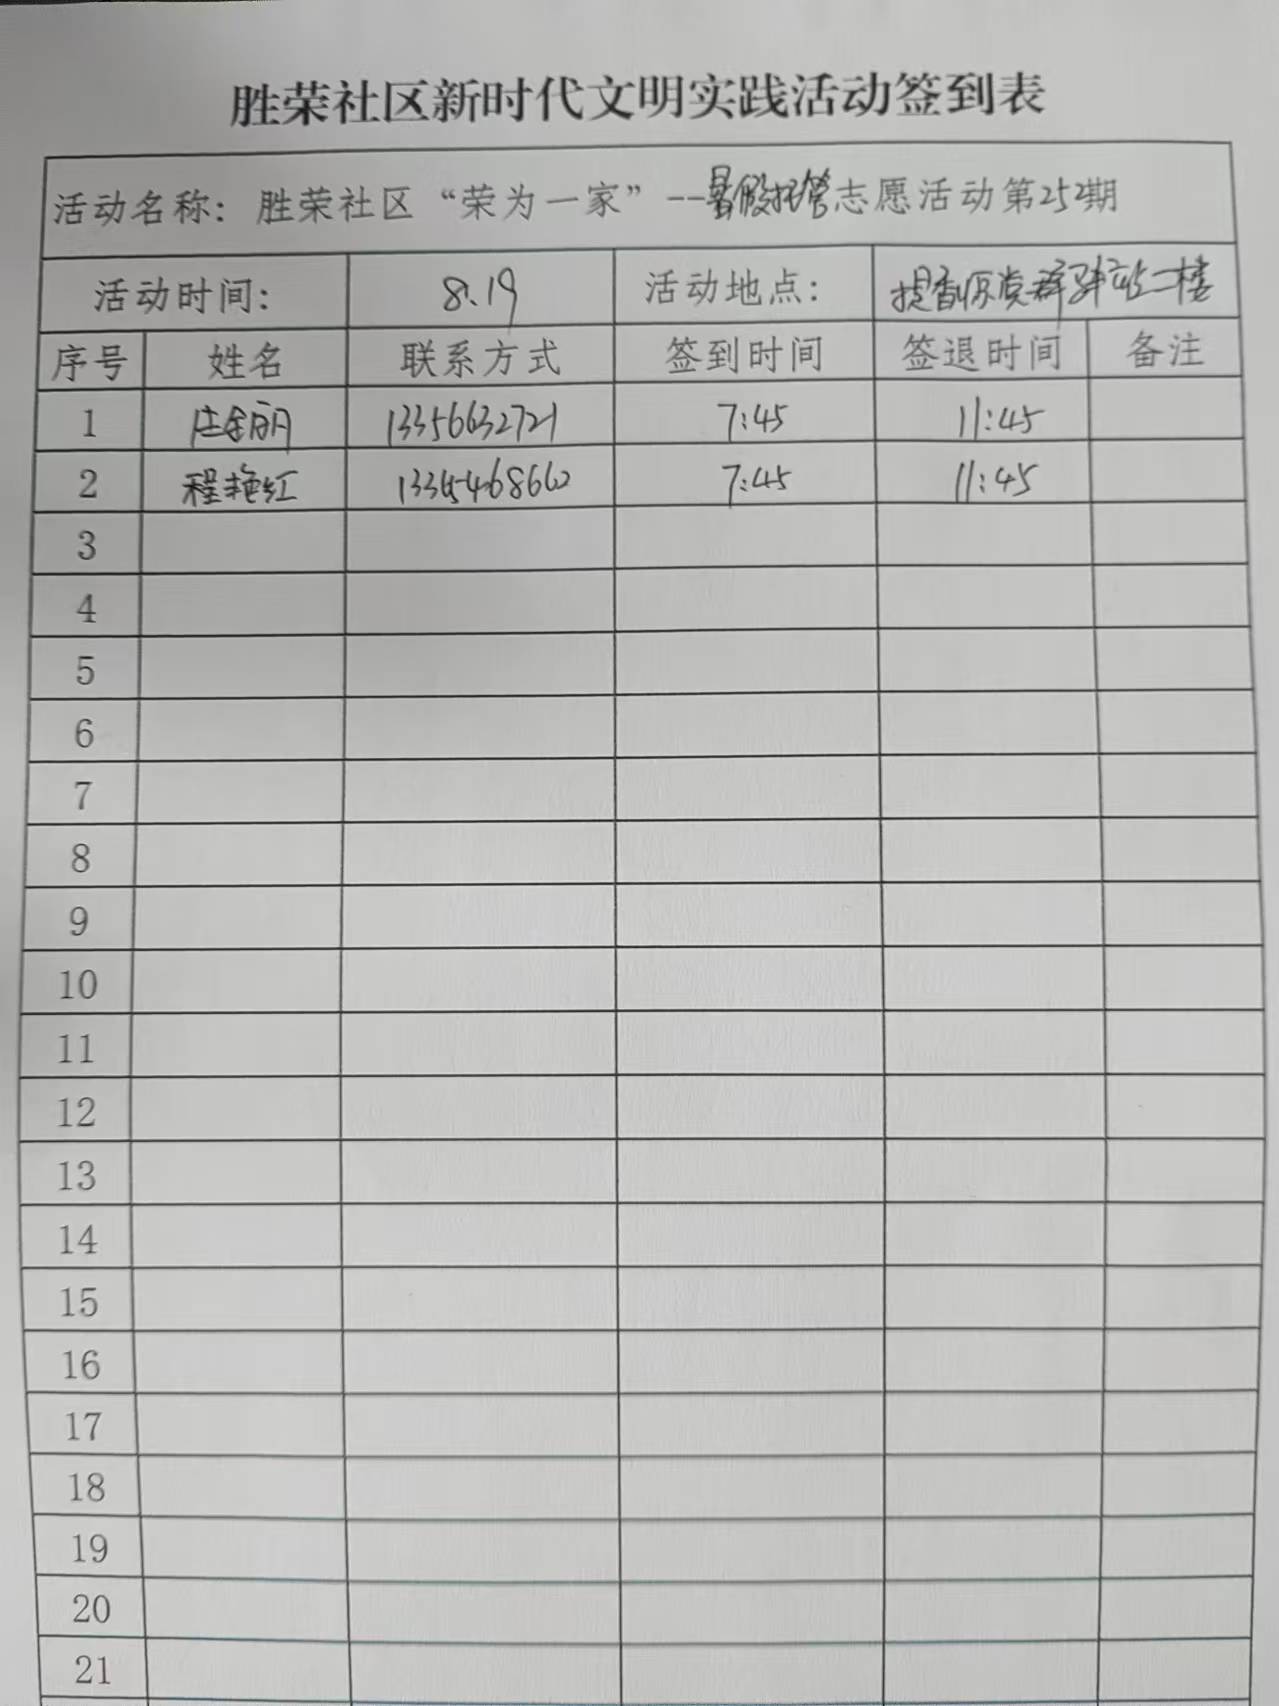 胜荣社区新时代文明实践活动签到表
活动名称：胜荣社区“荣为一家”--暑假托管志愿活动第252期
活动时间： 8.19 活动地点： 提香源党群驿站二楼
序号 姓名 联系方式 签到时间 签退时间 备注
1 庄金丽 13356632721 7:45 11:45
2 程艳红 7:45 11:45
3
4
5
6
7
8
9
10
11
12
13
14
15
16
17
18
19
20
21